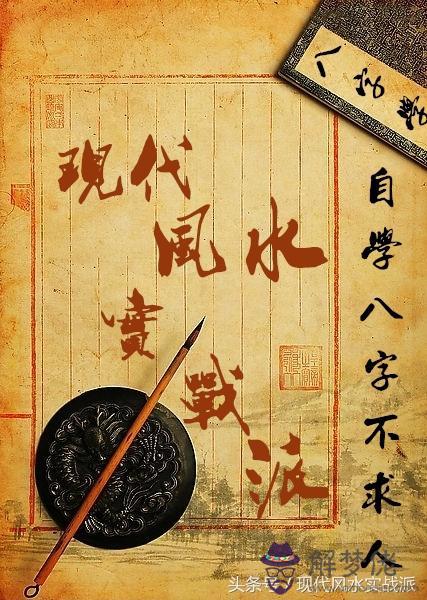 現代
風水
實
戰
派
自學八字不求人
解梦佬
头条号/现代风水实战派